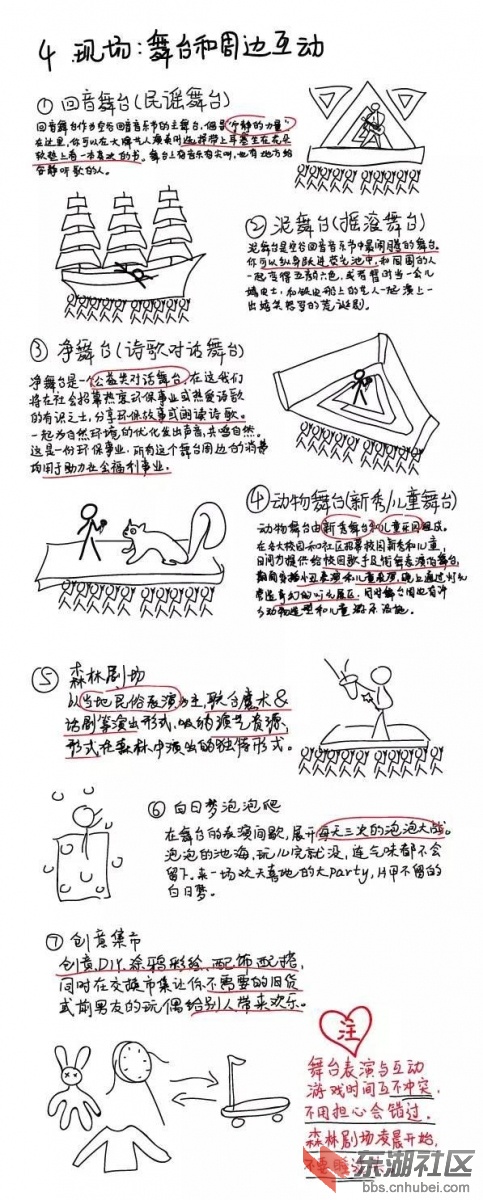 4 现场:舞台和周边互动
① 回音舞台(民谣舞台)
回音舞台作为空谷回音音乐节的主舞台,倡导"宁静的力量"
在这里,你可以在大牌艺人演奏时选择带上耳塞坐在花朵
软垫上看一本喜欢的书。舞台上有音乐有尖叫,也有地方给
安静听歌的人。
② 泥舞台(摇滚舞台)
泥舞台是空谷回音音乐节中最闹腾的舞台。
你可以纵身跃进荧光池中,和周围的人
一起变得五颜六色,或者暂时当一会儿
和铁皮船上的艺人一起演上一
出嬉笑怒骂的荒诞剧。
③ 净舞台(诗歌对话舞台)
净舞台是一个公益类对话舞台,在这我们
将在社会招募热衷环保事业或热爱诗歌
的有识之士,分享环保故事或朗读诗歌。
一起为自然环境的优化发出声音,共鸣自然。
这是一份环保事业,所有这个舞台周边的消费
均用于助力社会福利事业。
④ 动物舞台(新秀/儿童舞台)
动物舞台由新秀舞台和儿童花园组成。
在各大校园和社区招募校园新秀和儿童,
日间为提供给校园歌手及街舞表演的舞台,
期间穿插小丑表演和儿童表演,晚上通过灯光
营造奇幻的灯光展区,同时舞台周边有许
多动物造型和儿童游乐设施。
⑤ 森林剧场
以当地民俗表演为主,歌台魔术&
话剧等演出形式,吸纳演艺资源,
形式在森林中演出的独特形式。
⑥ 白日梦泡泡爬
在舞台的表演间歇,展开每天三次的泡泡大战。
泡泡的池海,玩儿完就没,连气味都不会
留下。来一场欢天喜地的大party,片甲不留的
白日梦。
⑦ 创意集市
创意、DIY、涂鸦彩绘、配饰配搭,
同时在交换市集让你不需要的旧货
或前男友的玩偶给别人带来欢乐。
注
舞台表演与互动
游戏时间互不冲突,
不用担心会错过。
森林剧场凌晨开始,
不要
东湖社区
bbs.cnhubei.com